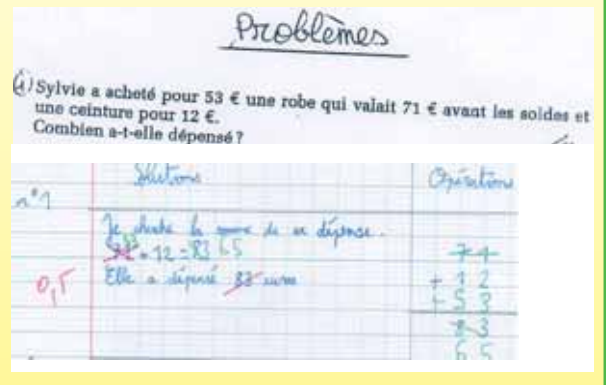 Problèmes
1) Sylvie a acheté pour 53 € une robe qui valait 71 € avant les soldes et
une ceinture pour 12 €.
Combien a-t-elle dépensé ?
Solutions
Opérations
n°1
Je cherche la de sa dépense.
53
71 + 12 = 83 65
0,5
Elle a dépensé 83 euros
71
+ 12
+ 53
83
65